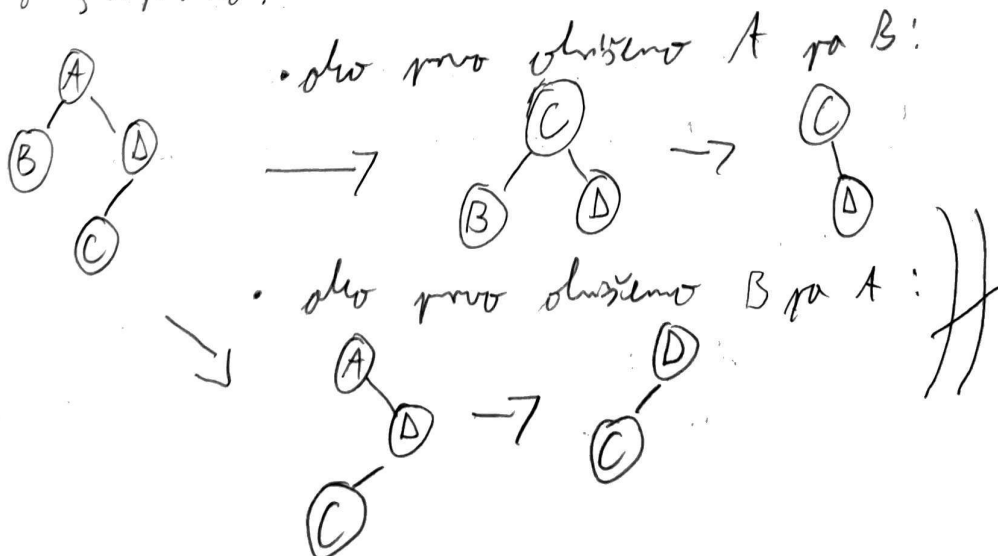 • ako prvo obrišemo A pa B:
A
B D
C
C
B D
C
D
• ako prvo obrišemo B pa A:
A
D
C
D
C